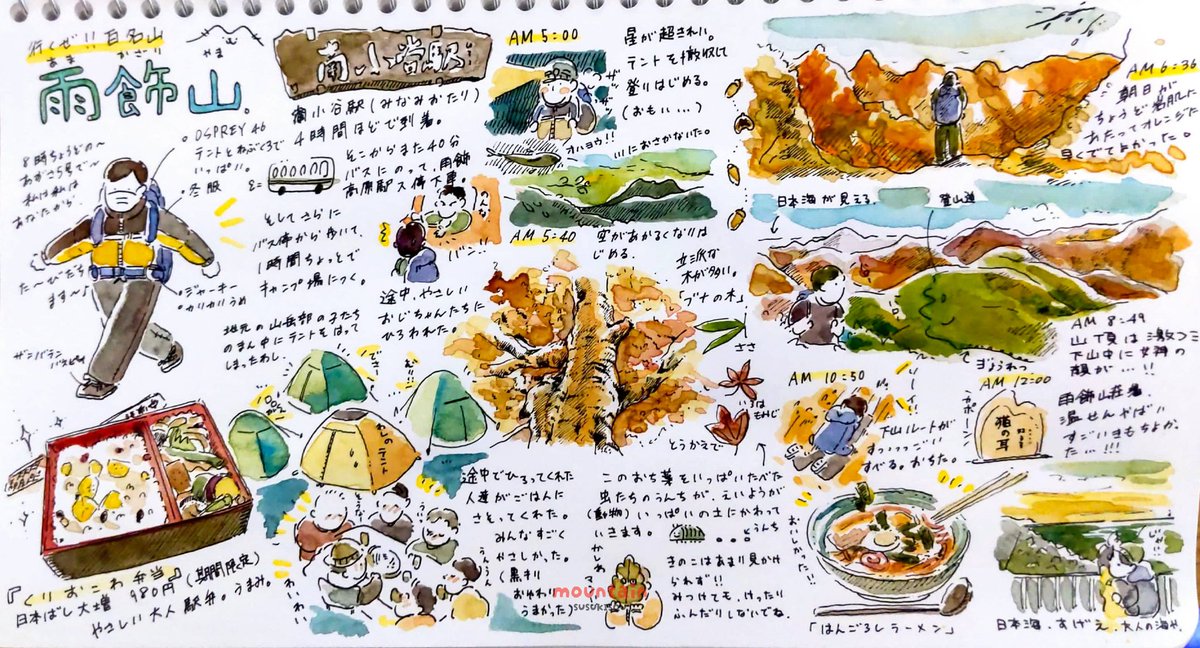 行くぜ!! 百名山
あま かざり やま
雨飾山。
8時ちょうどの〜
あずさ5号で〜
私は私は
あなたから
た〜びだち
ます〜♪
OSPREY 46
テントとねぶくろで
いっぱい。
冬服
ジャーキー
カリカリうめ
南小谷駅
南小谷駅(みなみおたり)
4時間ほどで到着。
そこからまた40分
バスにのって、雨飾
高原駅バス停下車。
そしてさらに
バス停から歩いて、
1時間ちょっとで
キャンプ場につく。
のんな
途中、やさしい
おじちゃんたちに
ひろわれた。
地元の山岳部の子たち
のまん中にテントをはって
しまったわし。
わしのテント
『くりおこわ弁当』(期間限定)
日本ばし大増 980円
やさしい大人駅弁。うまみ。
途中でひろってくれた
人達がごはんに
さそってくれた。
みんなすごく
やさしかった。
おかわり
うまかった)
わいわい
AM 5:00
星が超きれい。
テントを撤収して
登りはじめる。
(おもい...)
オハヨウ!!
AM 5:40
空があかるくなりは
じめる。
立派な
木が多い。
「ブナの木」
ささ
いろはもみじ
とうかえで
このおち葉をいっぱいたべた
虫たちのうんちが、えいようが
(動物)いっぱいの土にかわって
いきます。
うんち
きのこはあまり見かけ
られず!!
みつけても、けったり
ふんだりしないでね。
mountain
SUSUKI
AM 6:36
朝日が
ちょうど岩肌に
あたってオレンジに
早くでてよかった。
日本海が見える。
登山道
ぎょうれつ
AM 8:49
山頂は激コミ
下山中に女神の
顔が...!!
AM 10:50
下山ルートが
すっっっっごい
すべる。おちた。
AM 12:00
カポーン
猫の耳
雨飾山荘着。
温せんやばい
すごいきもちよか
た...!!!
おいしかった!!
「はんごろしラーメン」
日本海、すげえ、大人の海や。